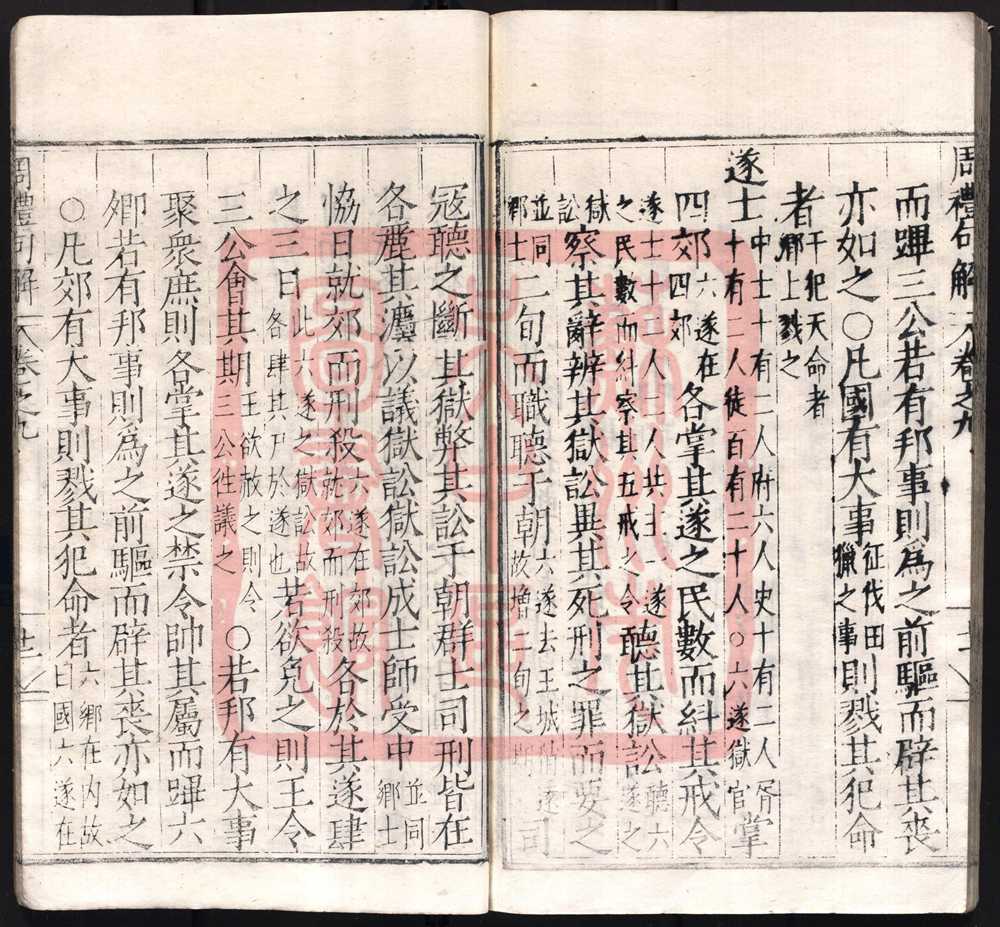 周禮句解 卷之九
而蹕三公若有邦事則為之前驅而辟其喪
亦如之〇凡國有大事征伐田獵之事則戮其犯命
者干犯天命者鄉士戮之
遂士中士十有二人府六人史十有二人胥十有二人徒百有二十人〇六遂獄官掌
四郊六遂在四郊各掌其遂之民數而糾其戒令
遂士十二人二人共主一遂之民數而糾察其五戒之令聽其獄訟聽六遂之
獄訟察其辭辨其獄訟異其死刑之罪而要之
並同鄉士二旬而職聽于朝六遂去王城稍遠故增二旬之期司
冦聽之斷其獄弊其訟于朝群士司刑皆在
各麗其灋以議獄訟獄訟成士師受中並同鄉士
恊日就郊而刑殺六遂在郊故就郊而刑殺各於其遂肆
之三日此六遂之獄訟故各肆其尸於遂也若欲免之則王令
三公會其期王欲赦之則令三公往議之〇若邦有大事
聚衆庶則各掌其遂之禁令帥其屬而蹕六
鄉若有邦事則為之前驅而辟其喪亦如之
〇凡郊有大事則戮其犯命者六鄉在內故曰國六遂在
周禮句解 卷之九